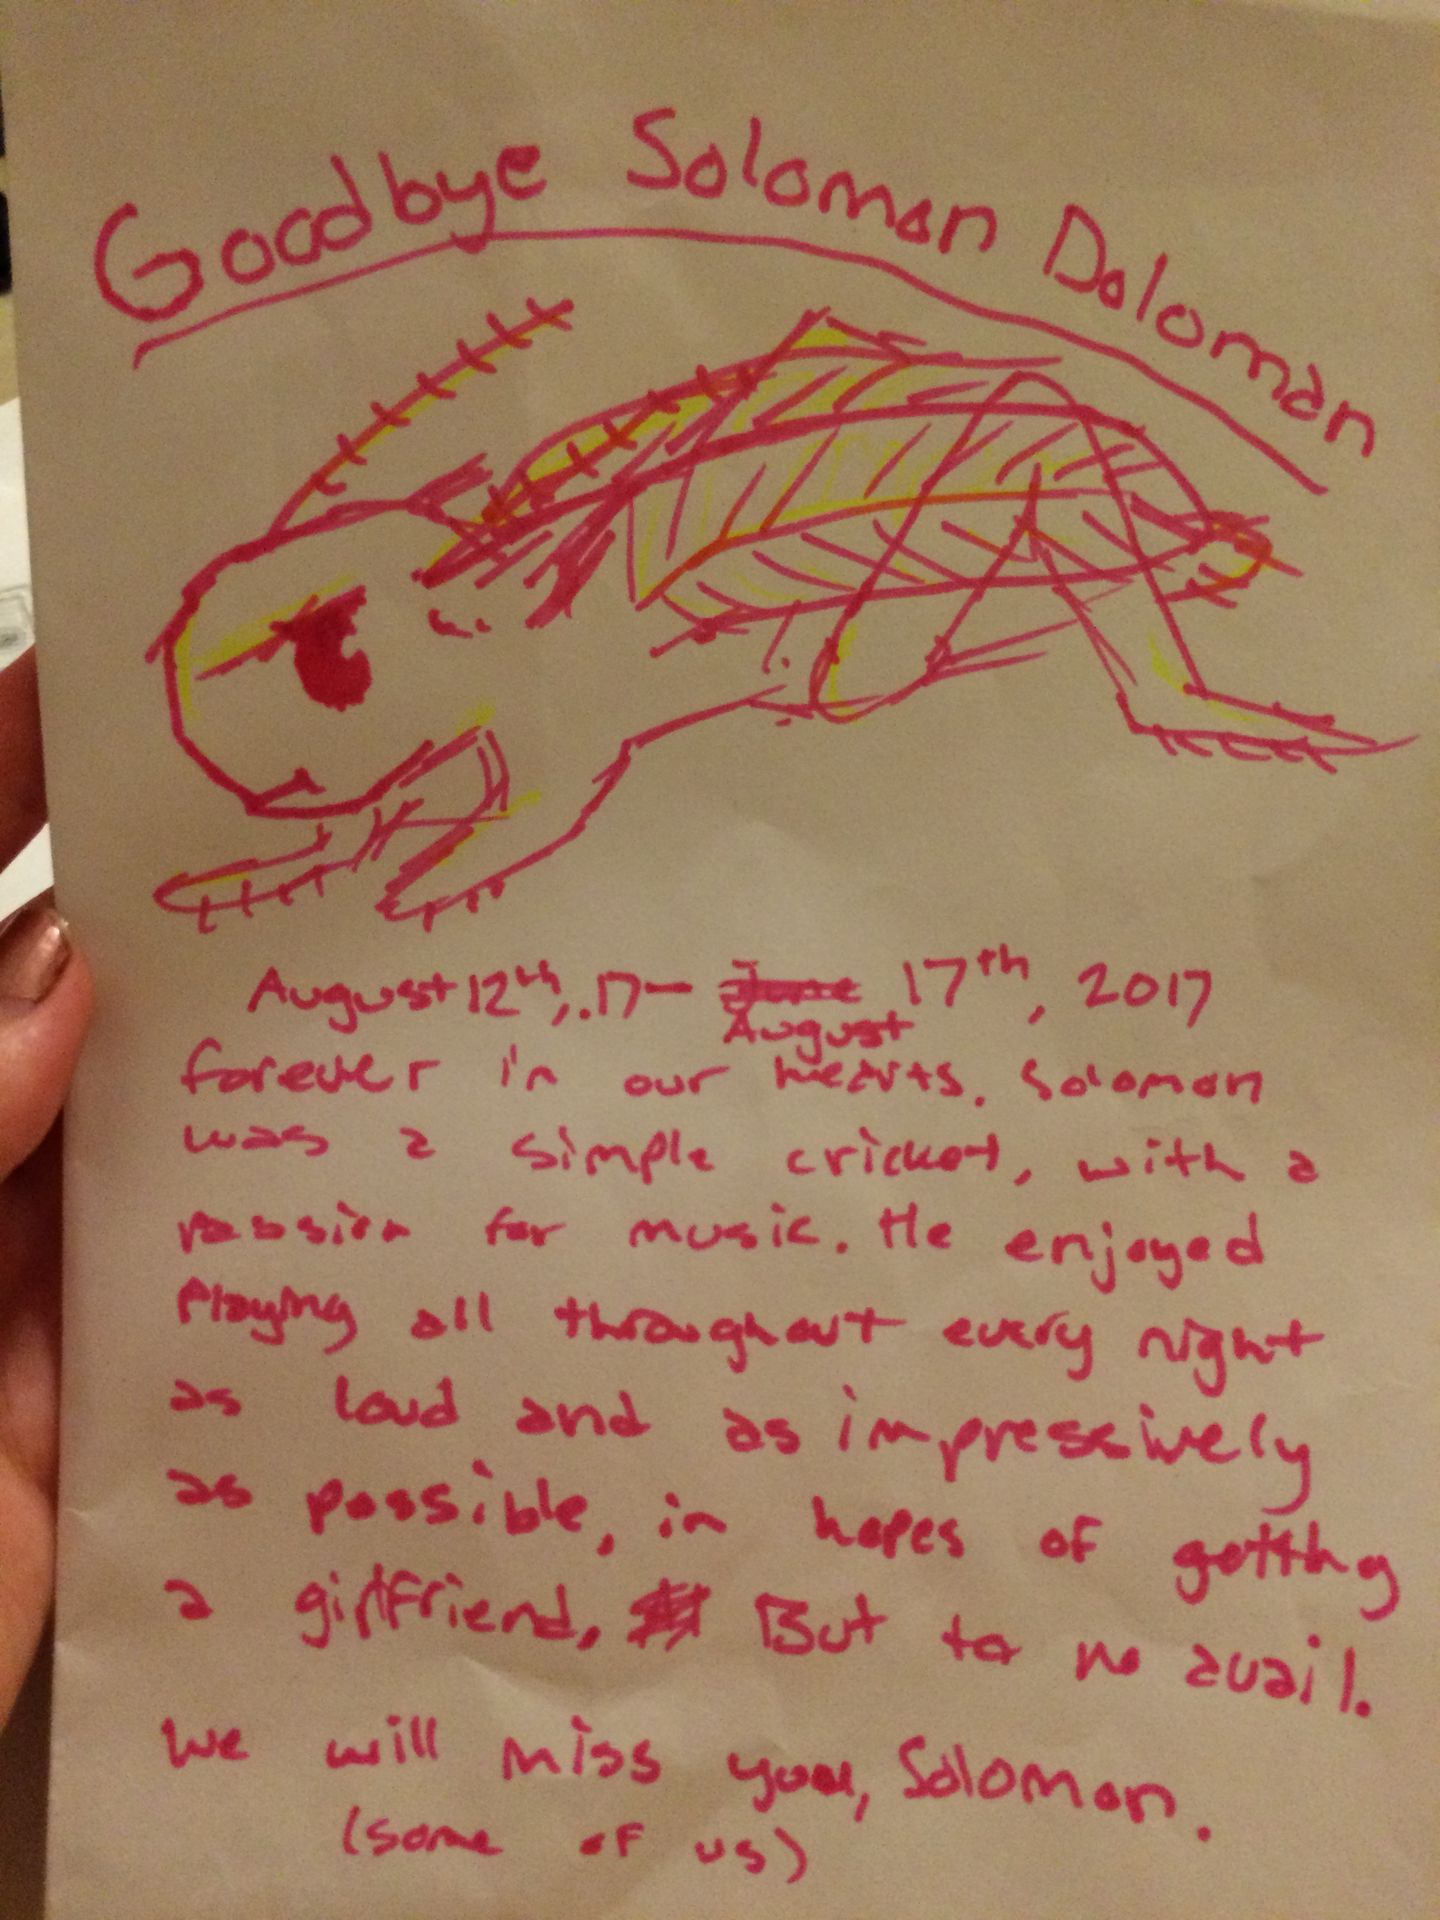 Goodbye Soloman Doloman
August 12th, .17 - June 17th, 2017
August
forever in our hearts. Soloman
was a simple cricket, with a
passion for music. He enjoyed
Playing all throughout every night
as loud and as impressively
as possible, in hopes of getting
a girlfriend, But to no avail.
We will miss you, Soloman.
(some of us)